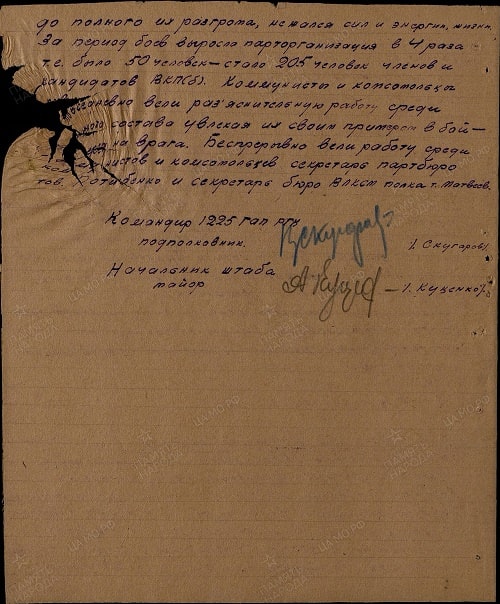 до полного их разгрома, не жалея сил и энергии, жизни.
За период боев выросла парторганизация в 4 раза
т.е. было 50 человек – стало 205 человек членов и
кандидатов ВКП(б). Коммунисты и комсомольцы
вели раз'яснительную работу среди
состава увлекая их своим примером в бой–
на врага. Беспрерывно вели работу среди
и комсомольцев секретарь партбюро
и секретарь бюро ВЛКСМ полка т. Матвеев.
Командир 1225 гап ргк
подполковник.
/. Скугарев/.
Начальник штаба
майор
– /. Куценко/.
ЦАМО.РФ
ПАМЯТЬ НАРОДА